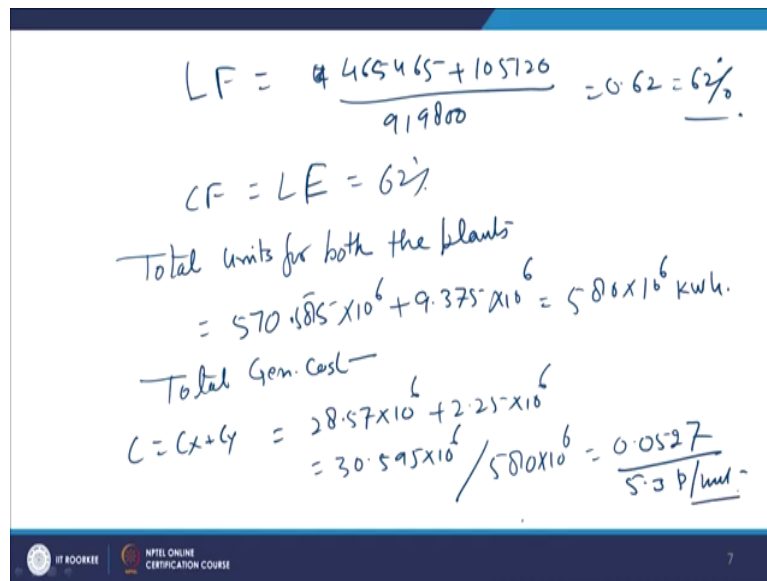 LF = 465465 + 105120
919800
= 0.62 = 62%.
CF = LE = 62%
Total units for both the plants
= 570.585 x10^6 + 9.375 x10^6 = 580 x10^6 kwh.
Total Gen. Cost
C = Cx + Cy = 28.57x10^6 + 2.25x10^6
= 30.595x10^6 / 580x10^6 = 0.0527
5.3 p/unit
IIT ROORKEE
NPTEL ONLINE
CERTIFICATION COURSE
7